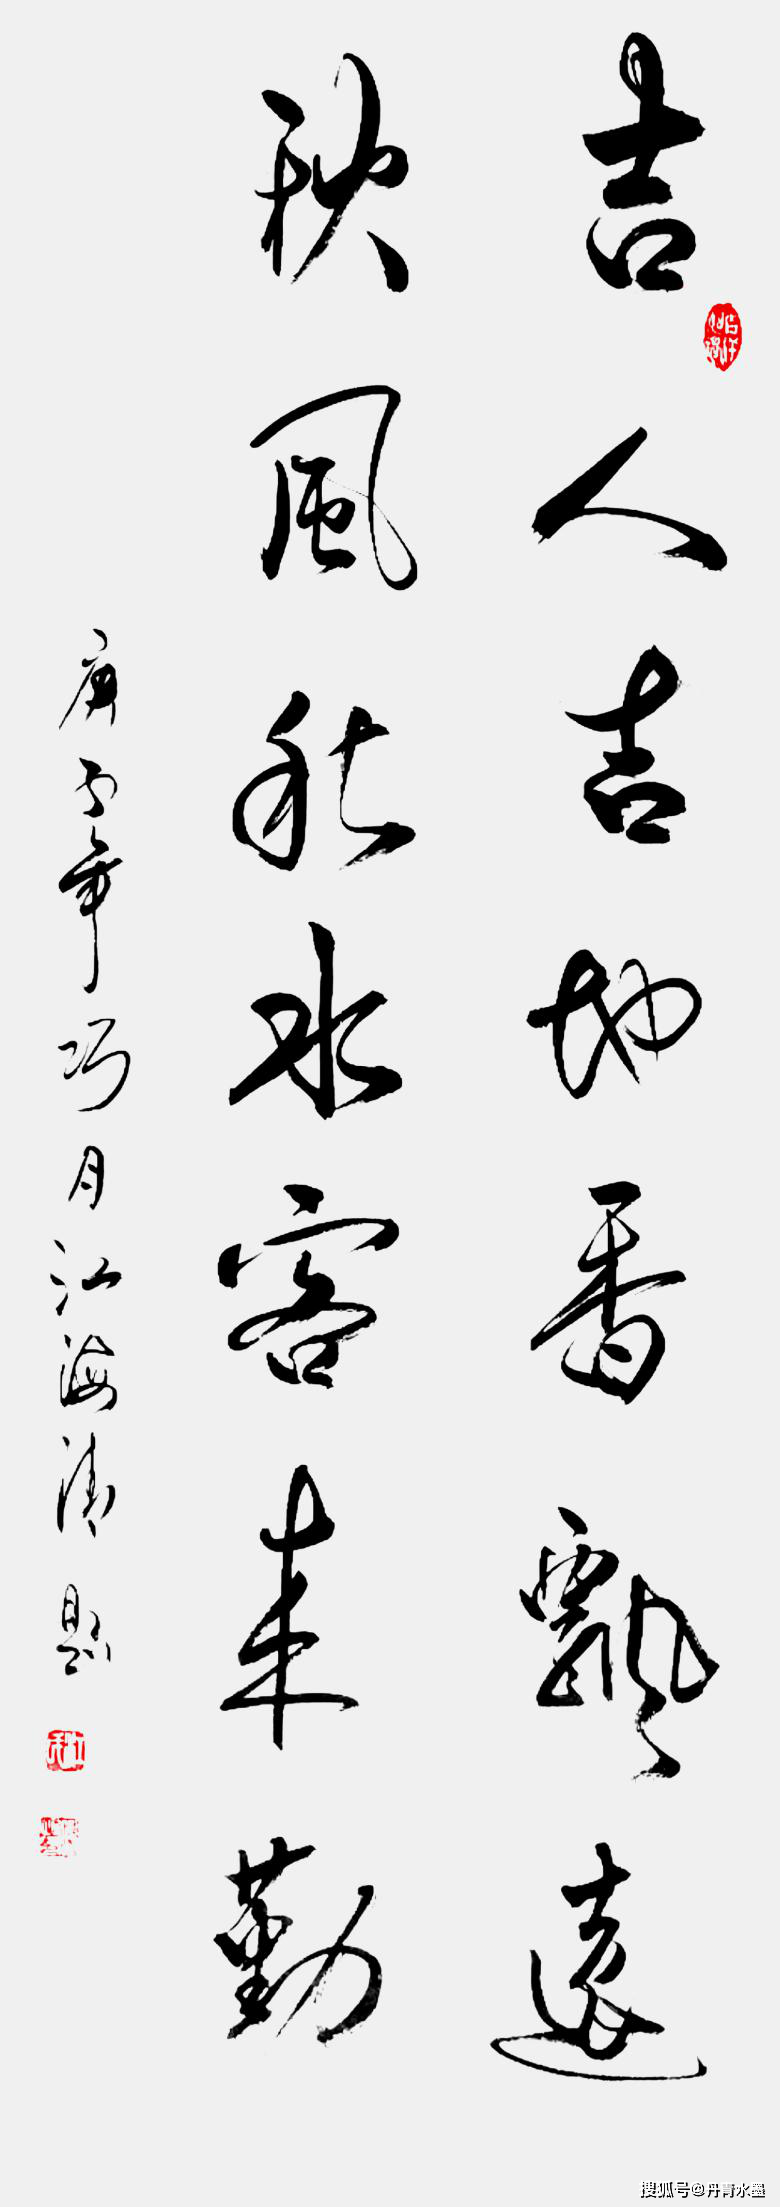 吉人吉地香飄遠
秋風秋水客来勤
庚子年巧月江海清題
搜狐号@丹青水墨